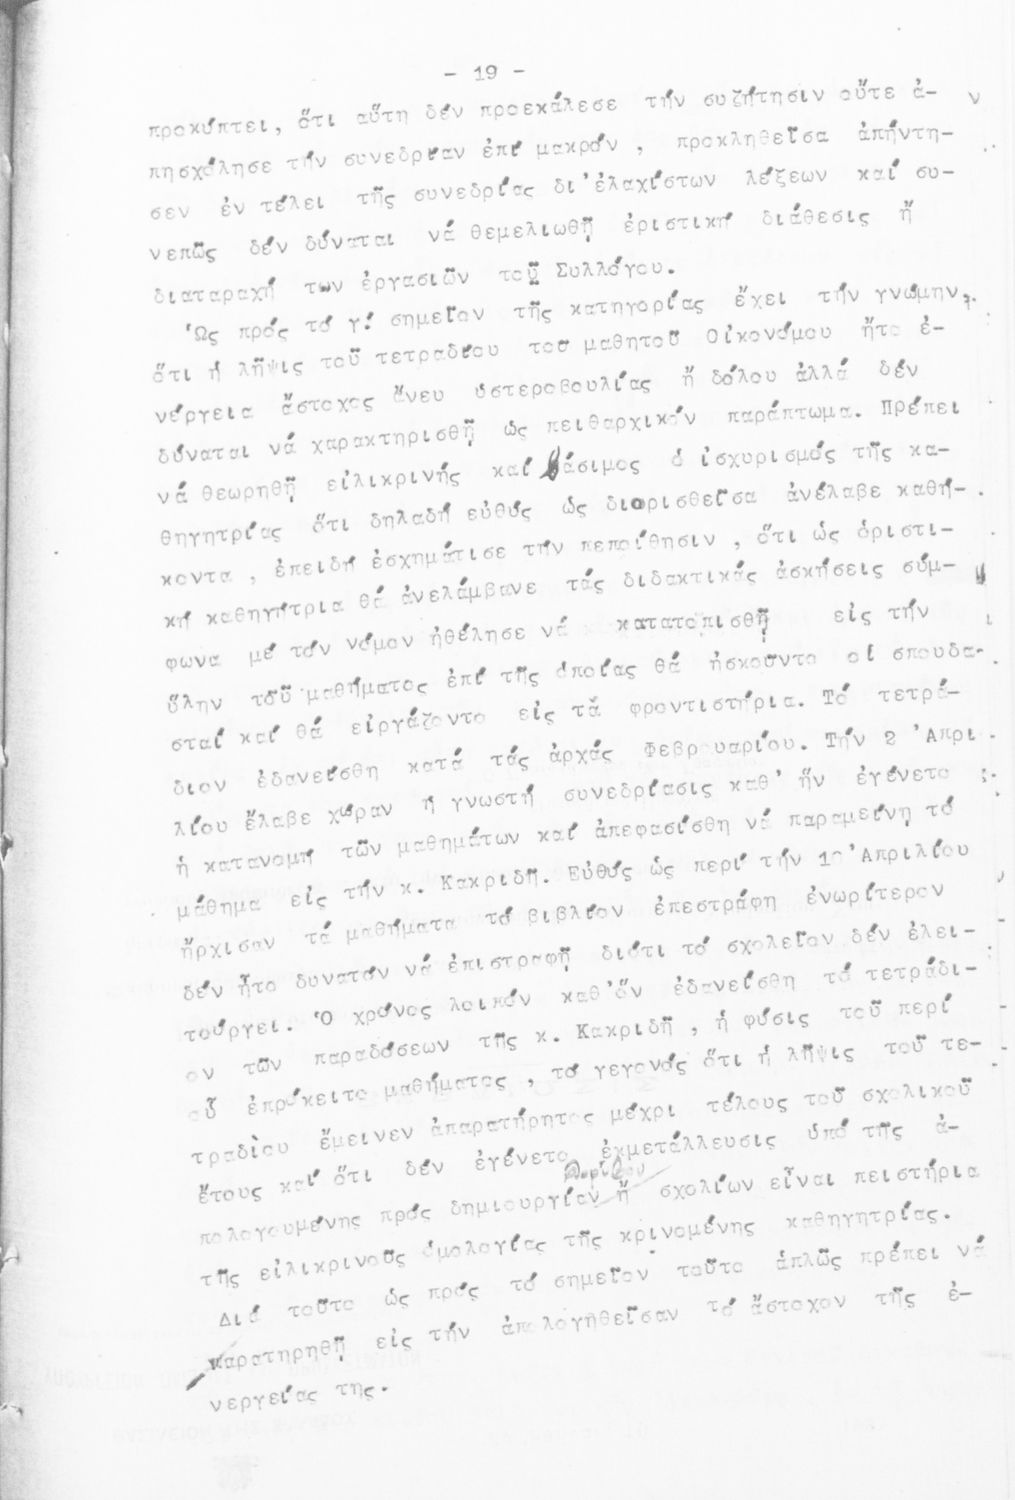 - 19 -
προκύπτει, ὅτι αὕτη δέν προεκάλεσε τήν συζήτησιν οὔτε ἀ-
πησχόλησε τήν συνεδρίαν ἐπί μακρόν , προκληθεῖσα ἀπήντη-
σεν ἐν τέλει τῆς συνεδρίας δι'ἐλαχίστων λέξεων καί συ-
νεπῶς δέν δύναται νά θεμελιωθῇ ἐριστική διάθεσις ἤ
διαταραχή των ἐργασιῶν τοῦ Συλλόγου.
Ὡς πρός τό γ! σημεῖον τῆς κατηγορίας ἔχει τήν γνώμην,
ὅτι ἡ λῆψις τοῦ τετραδίου του μαθητοῦ Οἰκονόμου ἦτο ἐ-
νέργεια ἄστοχος ἄνευ ὑστεροβουλίας ἤ δόλου ἀλλά δέν
δύναται νά χαρακτηρισθῇ ὡς πειθαρχικόν παράπτωμα. Πρέπει
νά θεωρηθῇ εἰλικρινής καί βάσιμος ὁ ἰσχυρισμός τῆς κα-
θηγητρίας ὅτι δηλαδή εὐθύς ὡς διορισθεῖσα ἀνέλαβε καθή-
κοντα , ἐπειδή ἐσχημάτισε τήν πεποίθησιν , ὅτι ὡς ὁριστι-
κή καθηγήτρια θά ἀνελάμβανε τάς διδακτικάς ἀσκήσεις σύμ-
φωνα μέ τόν νόμον ἠθέλησε νά κατατοπισθῇ εἰς τήν
ὕλην τοῦ μαθήματος ἐπί τῆς ὁποίας θά ἠσκοῦντο οἱ σπουδα-
σταί καί θά εἰργάζοντο εἰς τά φροντιστήρια. Τό τετρά-
διον ἐδανείσθη κατά τάς ἀρχάς Φεβρουαρίου. Τήν 2 'Απρι
λίου ἔλαβε χώραν ἡ γνωστή συνεδρίασις καθ' ἥν ἐγένετο
ἡ κατανομή τῶν μαθημάτων καί ἀπεφασίσθη νά παραμείνῃ τό
μάθημα εἰς τήν κ. Κακριδῆ. Εὐθύς ὡς περί τήν 10 'Απριλίου
ἤρχισαν τά μαθήματα τό βιβλίον ἐπεστράφη ἐνωρίτερον
δέν ἦτο δυνατόν νά ἐπιστραφῇ διότι τό σχολεῖον δέν ἐλει-
τούργει. Ὁ χρόνος λοιπόν καθ'ὅν ἐδανείσθη τό τετράδι-
ον τῶν παραδόσεων τῆς κ. Κακριδῆ , ἡ φύσις τοῦ περί
οὗ ἐπρόκειτο μαθήματος , τό γεγονός ὅτι ἡ λῆψις τοῦ τε-
τραδίου ἔμεινεν ἀπαρατήρητος μέχρι τέλους τοῦ σχολικοῦ
ἔτους καί ὅτι δέν ἐγένετο ἐκμετάλλευσις ὑπό τῆς ἀ-
θορύβου
πολογουμένης πρός δημιουργίαν ἤ σχολίων εἶναι πειστήρια
τῆς εἰλικρινοῦς ὁμολογίας τῆς κρινομένης καθηγητρίας.
Διά τοῦτο ὡς πρός τό σημεῖον τοῦτο ἁπλῶς πρέπει νά
παρατηρηθῇ εἰς τήν ἀπολογηθεῖσαν τό ἄστοχον τῆς ἐ-
νεργείας της.